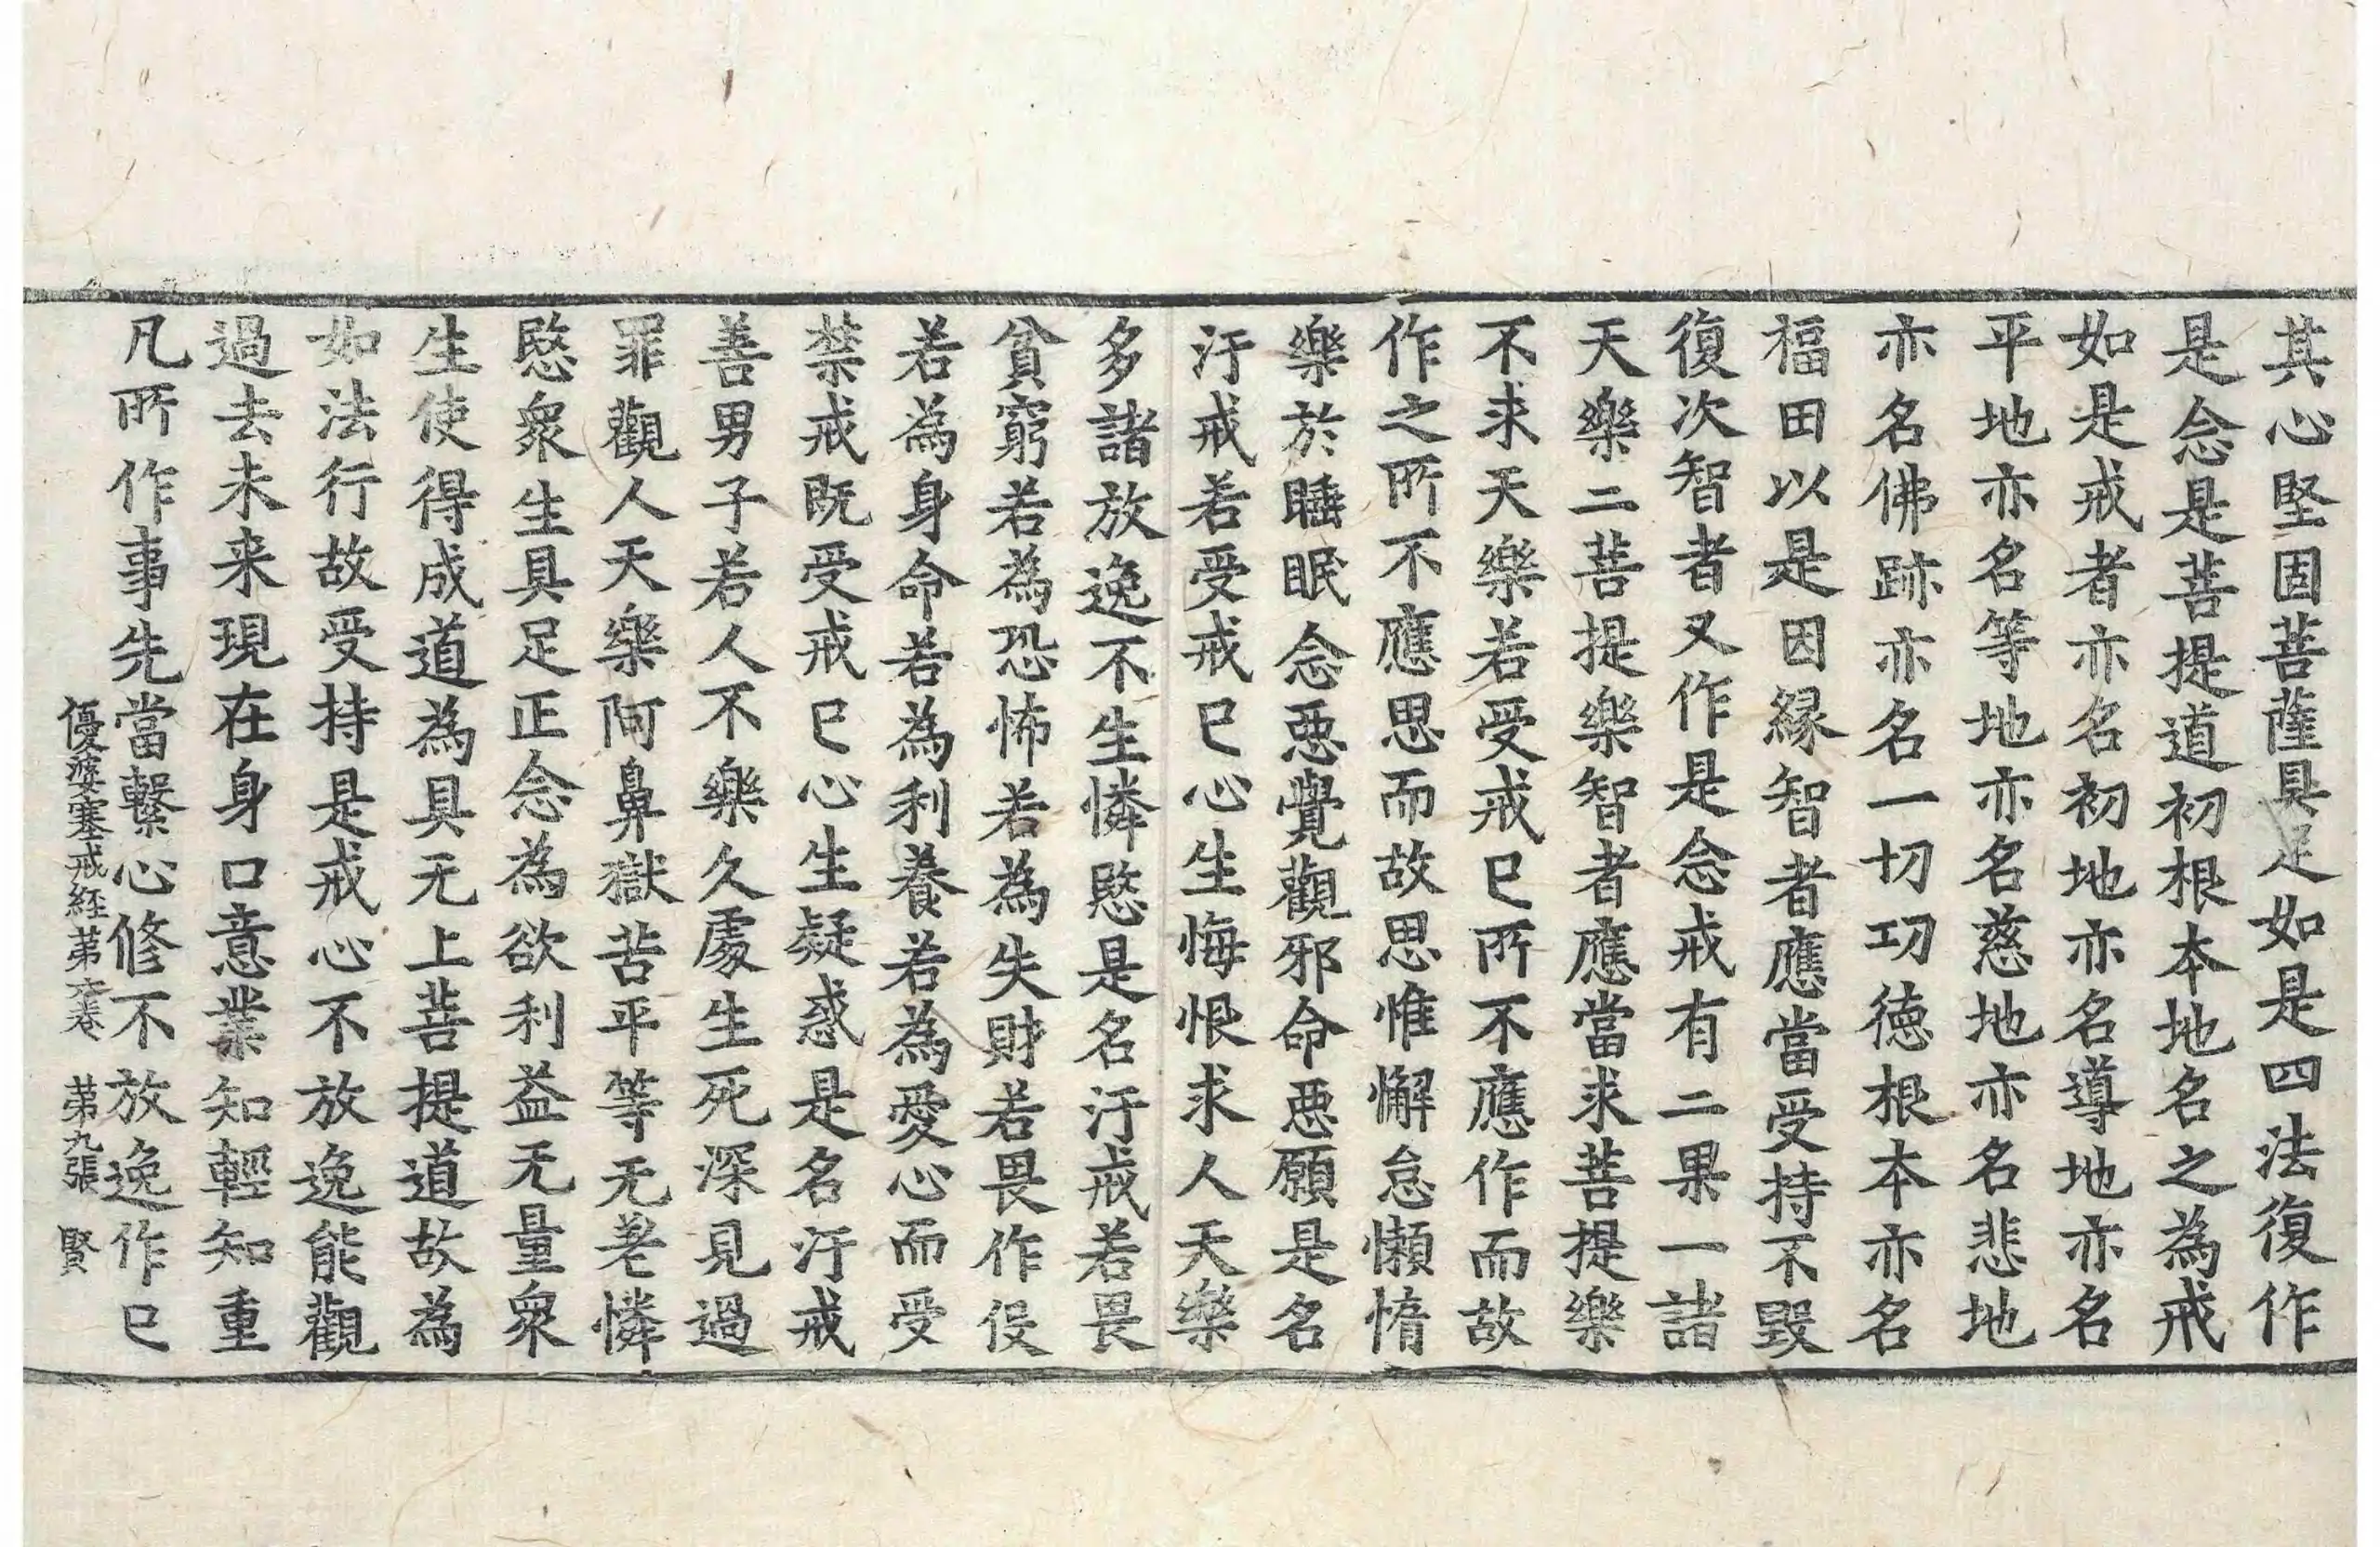 其心堅固菩薩具足如是四法復作
是念是菩提道初根本地名之為戒
如是戒者亦名初地亦名導地亦名
平地亦名等地亦名慈地亦名悲地
亦名佛跡亦名一切功徳根本亦名
福田以是因縁智者應當受持不毀
復次智者又作是念戒有二果一諸
天樂二菩提樂智者應當求菩提樂
不求天樂若受戒已所不應作而故
作之所不應思而故思惟懈怠懶惰
樂於睡眠念惡覺觀邪命惡願是名
汙戒若受戒已心生悔恨求人天樂
多諸放逸不生憐愍是名汙戒若畏
貧窮若為恐怖若為失財若畏作役
若為身命若為利養若為愛心而受
禁戒既受戒已心生疑惑是名汙戒
善男子若人不樂久處生死深見過
罪觀人天樂阿鼻獄苦平等无差憐
愍衆生具足正念為欲利益无量衆
生使得成道為具无上菩提道故為
如法行故受持是戒心不放逸能觀
過去未来現在身口意業知輕知重
凡所作事先當繫心修不放逸作已
優婆塞戒経苐六卷 苐九張 賢